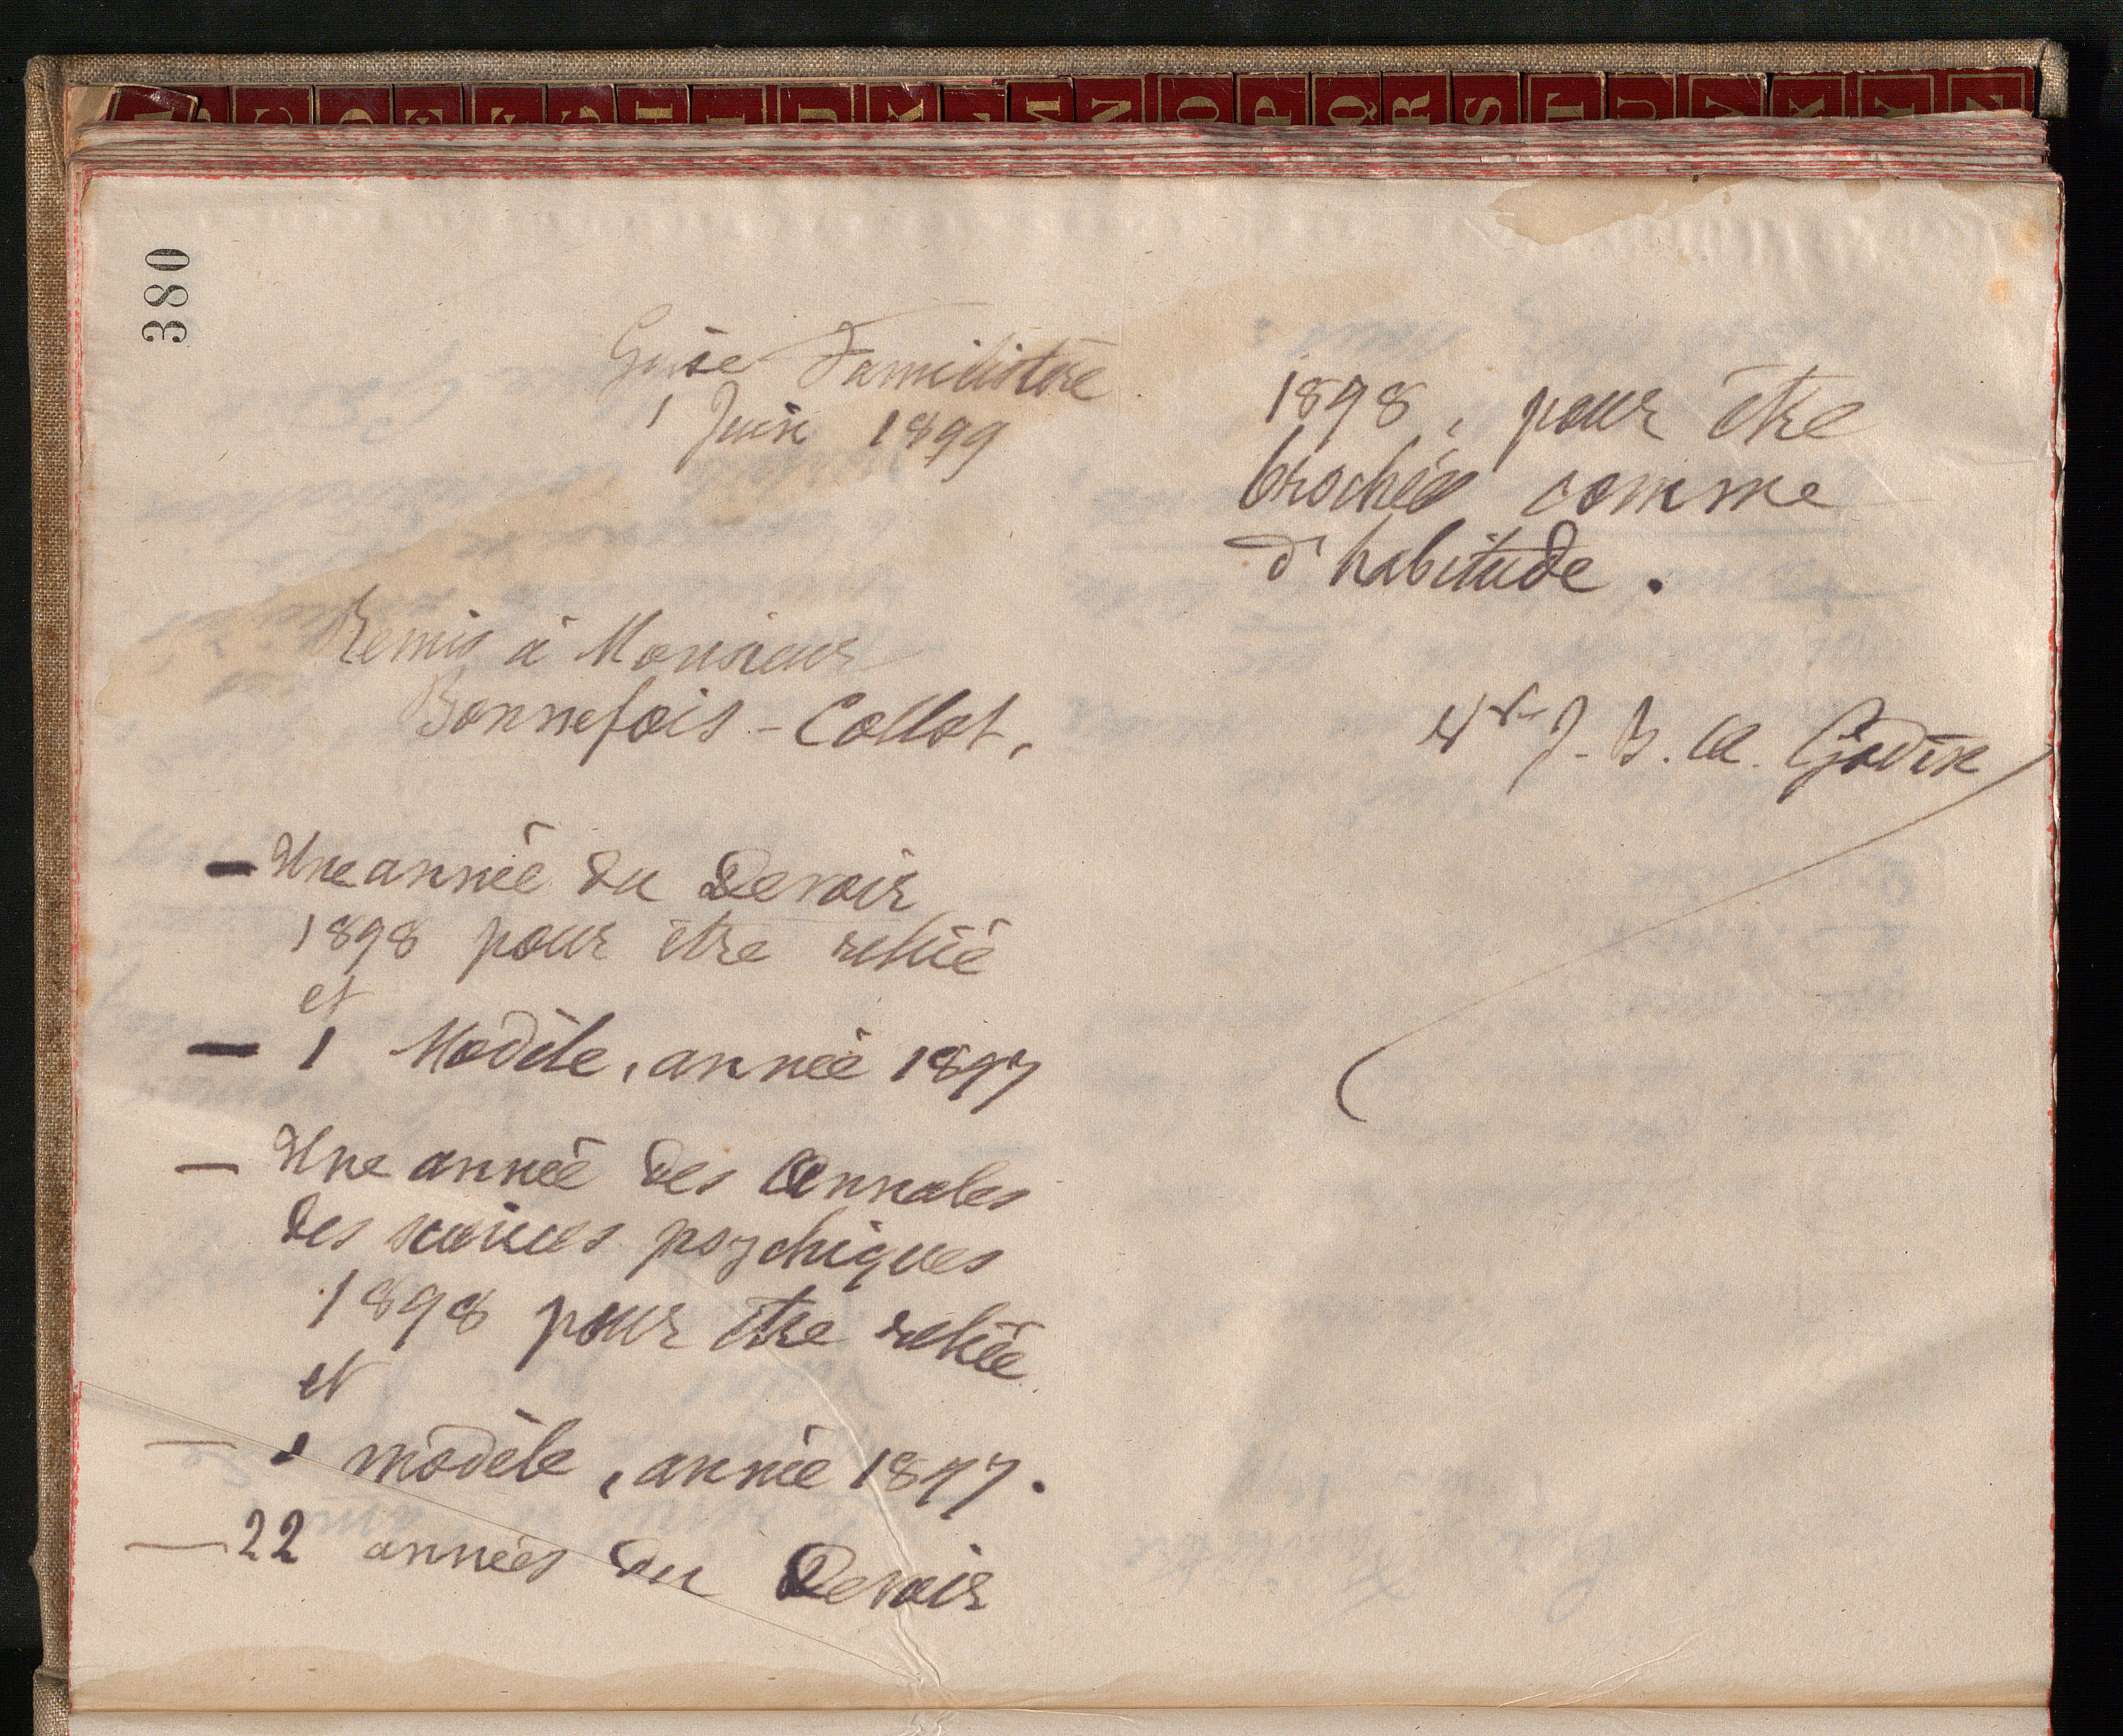 A B C D E F G H I J K L M N O P Q R S T U V X Y Z
380
Guise Familistère
1 Juin 1899
Remis à Monsieur
Bonnefois - Collot,
— Une année du Devoir
1898 pour être relié
et
— 1 Modèle, année 1897
— Une année des Annales
des sciences psychiques
1898 pour être reliée
et
— 1 modèle, année 1897.
— 22 années du Devoir
1898, pour être
brochées comme
d'habitude.
Vve J. B. A. Godin